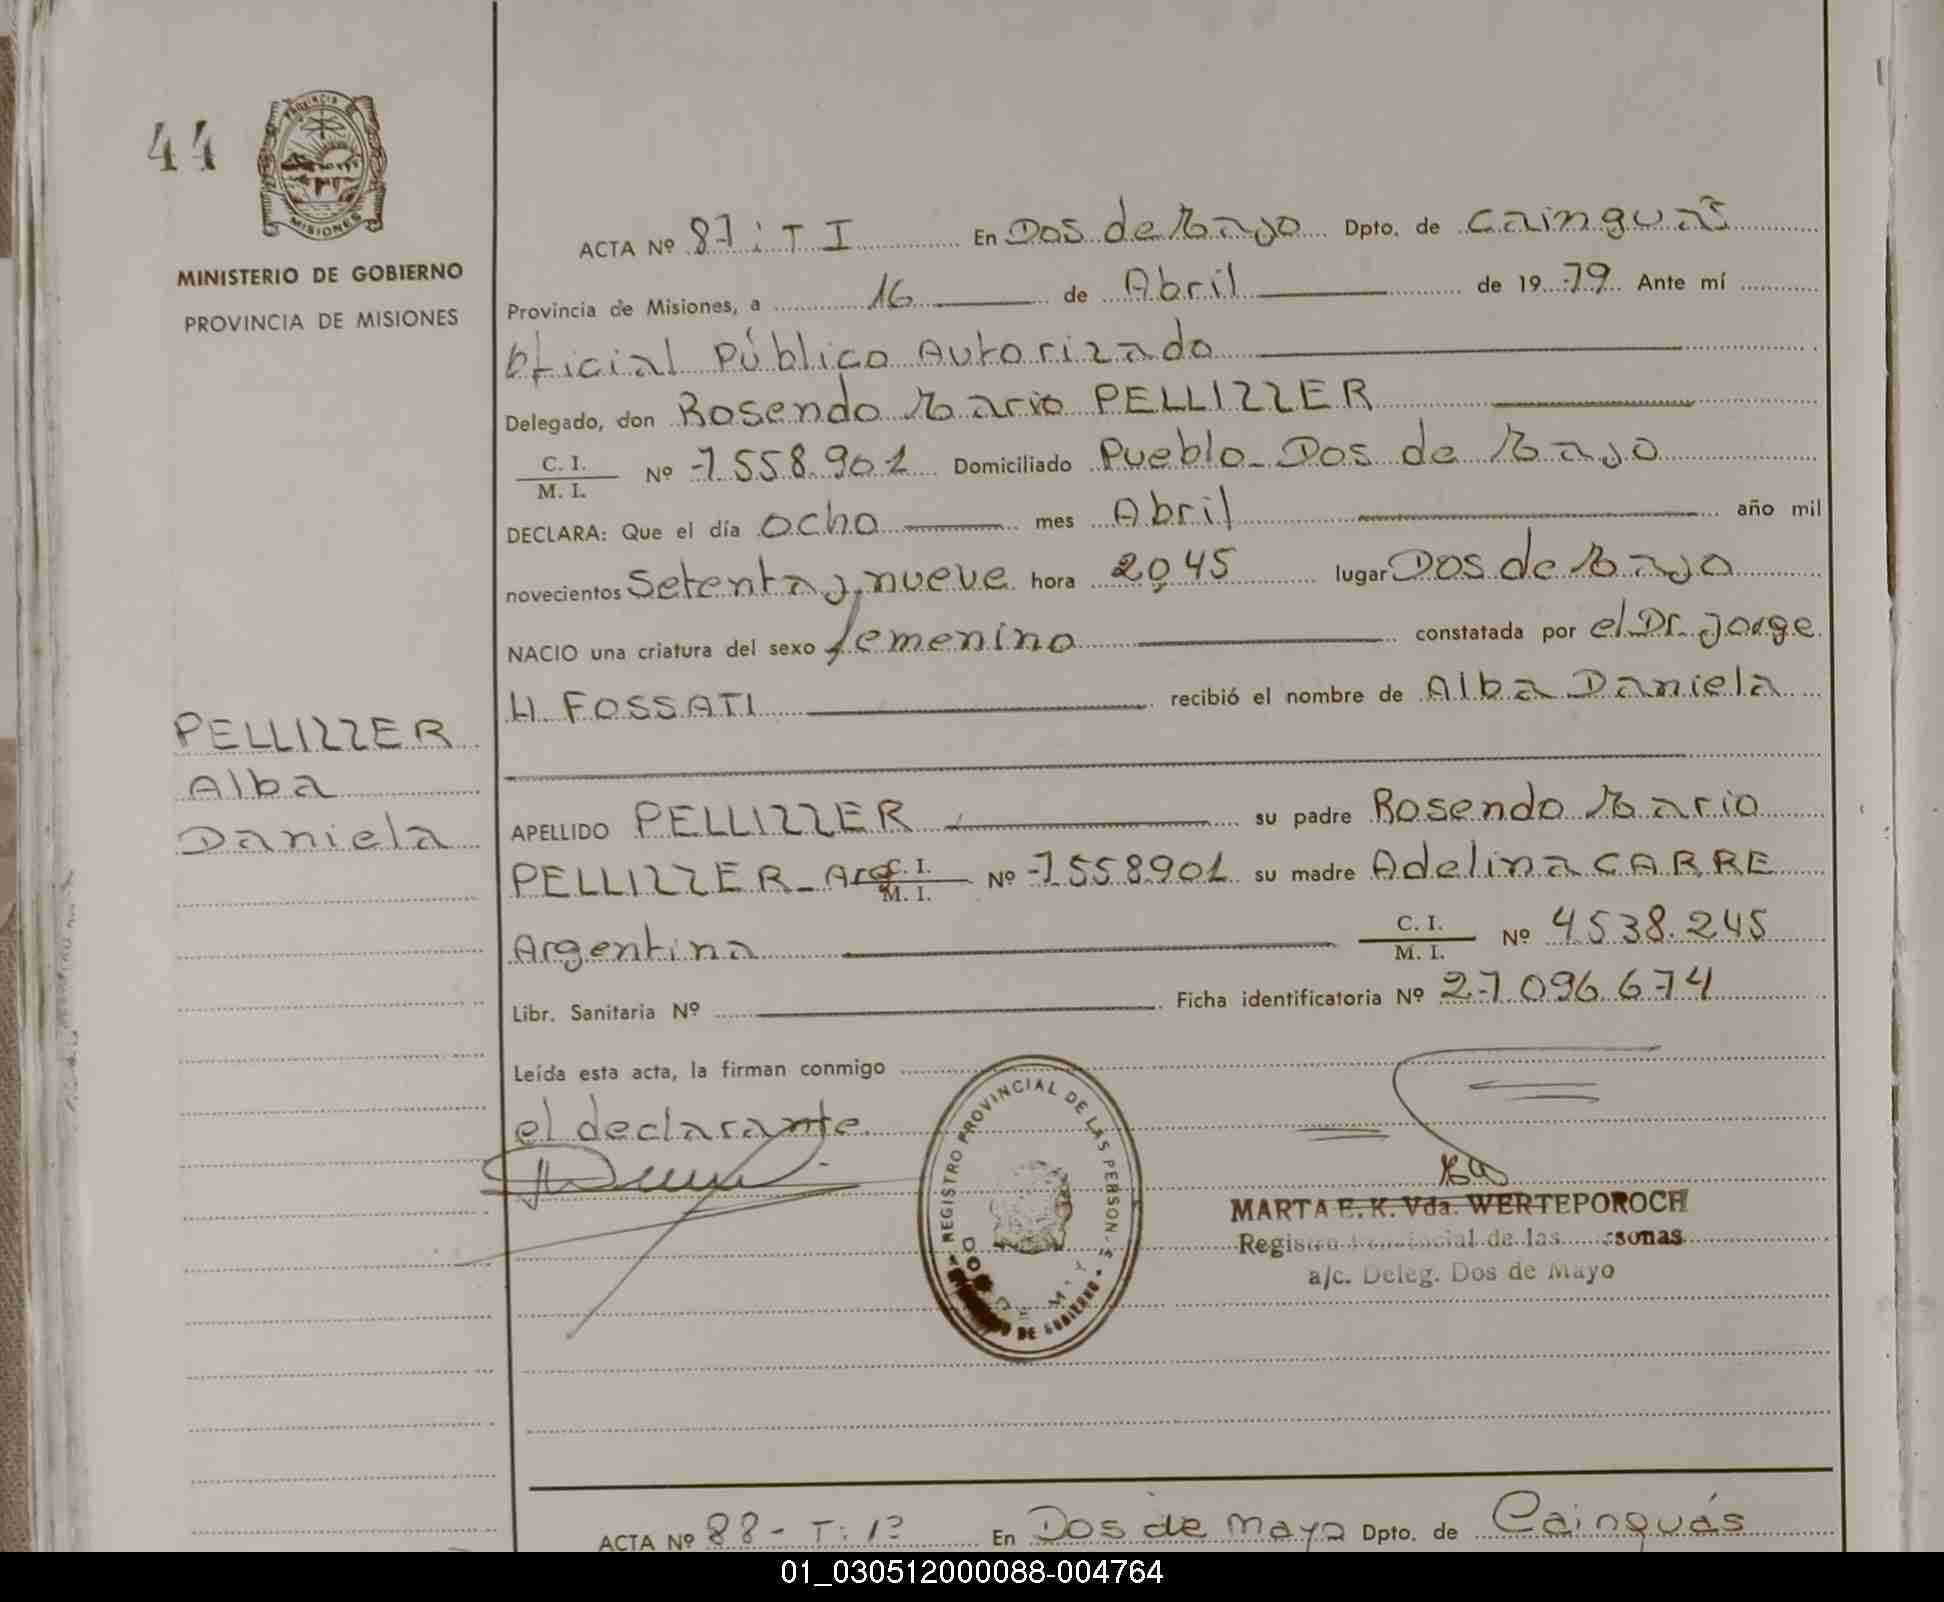 44
PROVINCIA DE
MISIONES
MINISTERIO DE GOBIERNO
PROVINCIA DE MISIONES
PELLIZZER
Alba
Daniela
ACTA Nº 87: T I En Dos de Mayo Dpto. de Cainguás
Provincia de Misiones, a 16 de Abril de 1979 Ante mí
Oficial Público Autorizado
Delegado, don Rosendo Mario PELLIZZER
C. I.
M. I. Nº 7.558.901 Domiciliado Pueblo-Dos de Mayo
DECLARA: Que el día ocho mes Abril año mil
novecientos Setenta y nueve hora 20,45 lugar Dos de Mayo
NACIO una criatura del sexo femenino constatada por el Dr. Jorge
H. FOSSATI recibió el nombre de Alba Daniela
APELLIDO PELLIZZER su padre Rosendo Mario
PELLIZZER-Arg C. I.
M. I. Nº 7.558.901 su madre Adelina CARRE
Argentina C. I.
M. I. Nº 4.538.245
Libr. Sanitaria Nº Ficha identificatoria Nº 27.096.674
Leída esta acta, la firman conmigo
el declarante.
REGISTRO PROVINCIAL DE LAS PERSON
DE GOBIERNO
MARTA E. K. Vda. WERTEPOROCH
Registro Provincial de las Personas
a/c. Deleg. Dos de Mayo
ACTA Nº 88- T: 1º En Dos de Mayo Dpto. de Cainguás
01_030512000088-004764